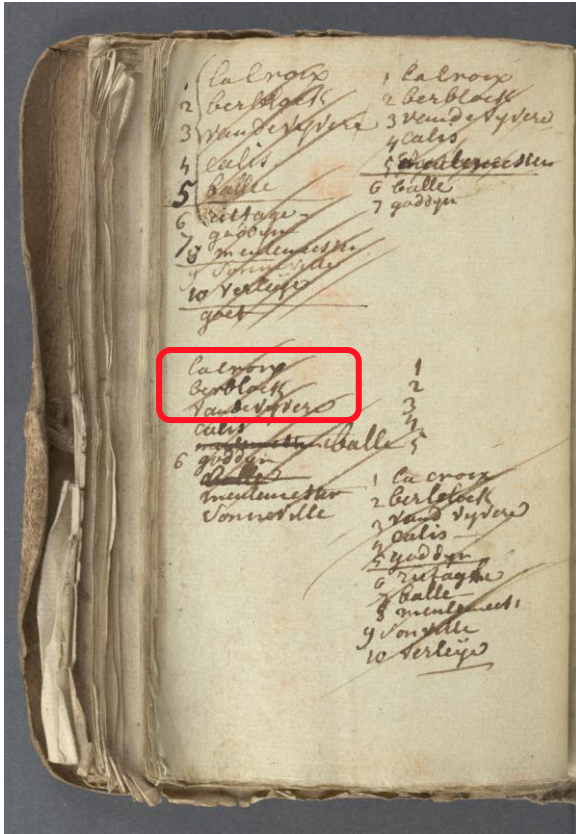 1 la Croix
2 berblock
3 vande vyvere
4 calis
5 balle
6 rittage
7 goddyn
8 meulemeester
9 Sonneville
10 Verleye
goet
1 la Croix
2 berblock
3 vande vyvere
4 calis
5 meulemeester
6 balle
7 goddyn
la croix
berblock
vande vyvere
calis
balle
6 goddyn
balle
meulemeester
Sonneville
1
2
3
4
5
1 la croix
2 berblock
3 vand vyvere
4 calis
5 goddyn
6 rittaghe
7 balle
8 meulemeest
9 Sonville
10 Verleye